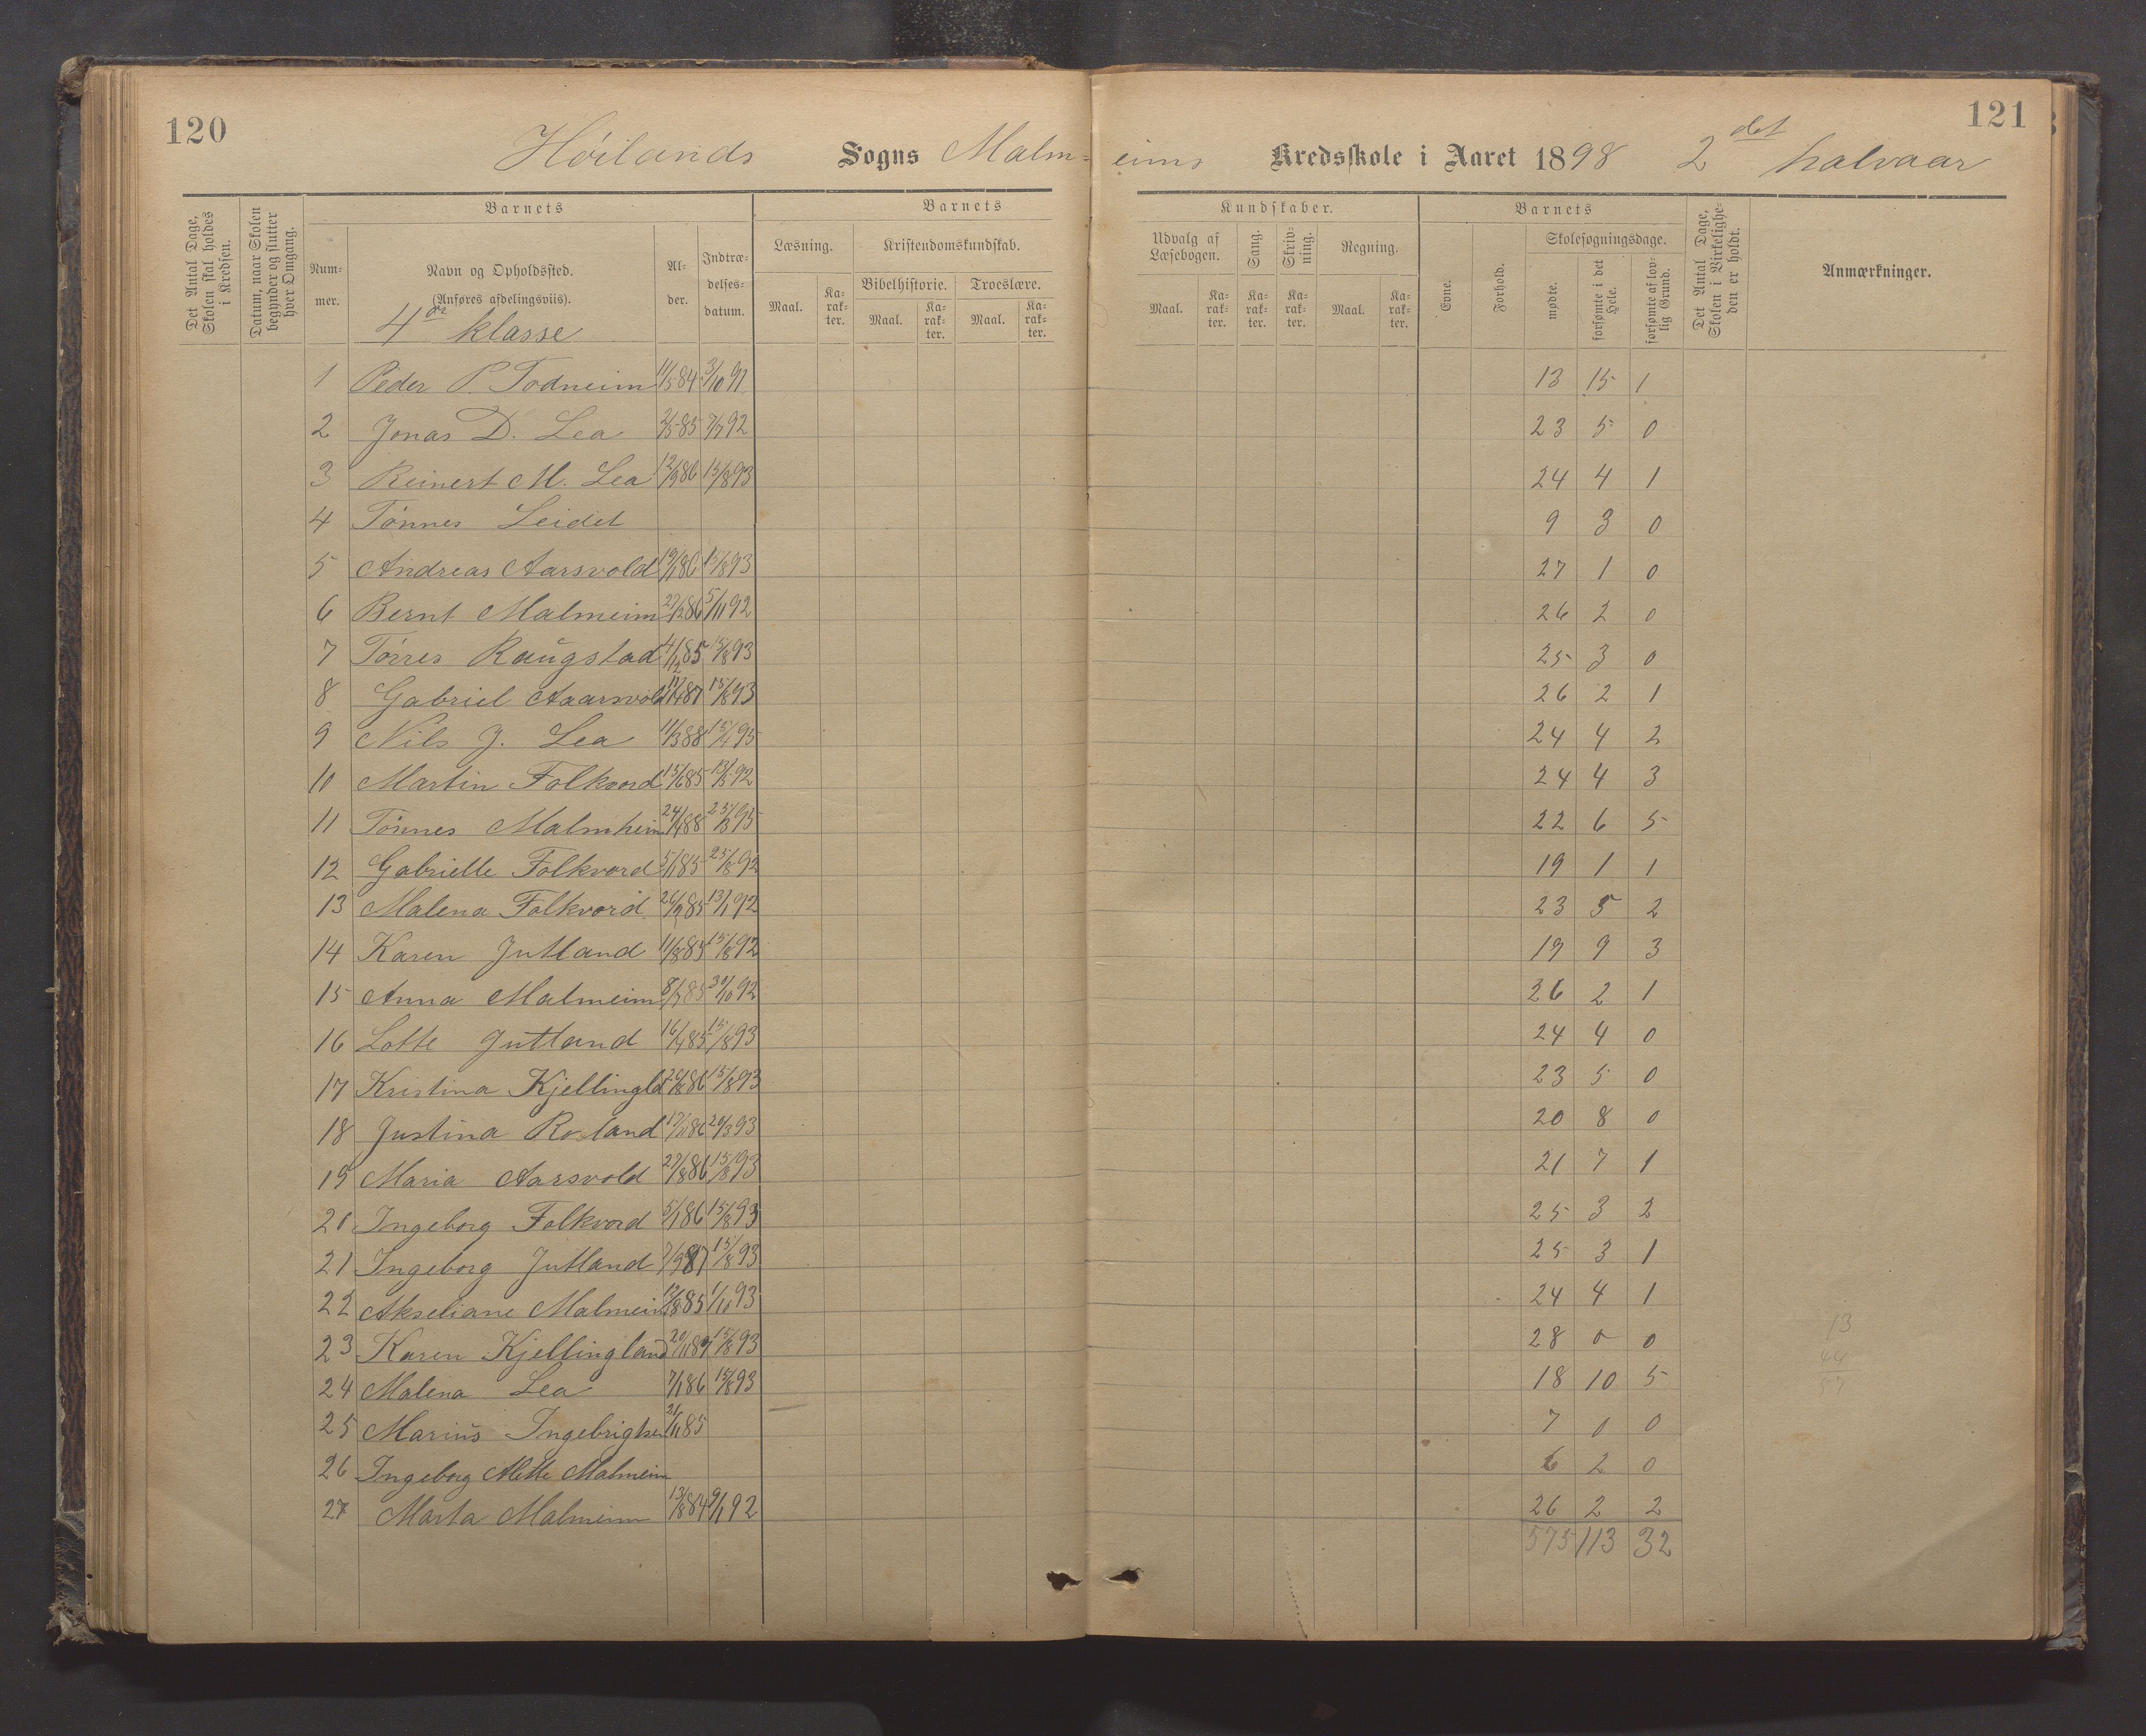 120
121
Høilands Sogns Malm-eims Kredsskole i Aaret 1898 2det halvaar
Det Antal Dage, Skolen skal holdes i Kredsen.
Datum, naar Skolen begynder og slutter hver Omgang.
Barnets
Nummer.
Navn og Opholdssted.
(Anføres afdelingsviis).
Alder.
Indtrædelsesdatum.
Barnets Kundskaber.
Læsning.
Maal. Karakter.
Kristendomskundskab.
Bibelhistorie. Troeslære.
Maal. Karakter. Maal. Karakter.
Udvalg af Læsebogen.
Maal. Karakter.
Sang. Karakter.
Skrivning. Karakter.
Regning.
Maal. Karakter.
Barnets
Evne.
Forhold.
Skolesøgningsdage.
mødte.
forsømte i det Hele.
forsømte af lovlig Grund.
Det Antal Dage, Skolen i Virkeligheden er holdt.
Anmærkninger.
4de klasse
1 Peder P. Todneim 11/5 84 3/10 91 13 15 1
2 Jonas D. Lea 2/5 85 7/7 92 23 5 0
3 Reinert M. Lea 12/9 86 15/8 93 24 4 1
4 Tønnes Leidel 9 3 0
5 Andreas Aarsvold 19/1 86 15/8 93 27 1 0
6 Bernt Malmeim 27/2 86 5/11 92 26 2 0
7 Tørres Raugstad 4/12 85 15/8 93 25 3 0
8 Gabriel Aaarsvold 87 15/8 93 26 2 1
9 Nils J. Lea 11/3 88 15/4 95 24 4 2
10 Martin Folkvord 15/6 85 92 24 4 3
11 Tønnes Malmheim 88 95 22 6 5
12 Gabrielle Folkvord 5/1 85 25/8 92 19 1 1
13 Malena Folkvord 26/9 85 13/1 92 23 5 2
14 Karen Jutland 11/8 85 15/8 92 19 9 3
15 Anna Malmeim 8/7 85 92 26 2 1
16 Lotte Jutland 85 15/8 93 24 4 0
17 Kristina Kjellingld 86 15/8 93 23 5 0
18 Justina Roland 86 93 20 8 0
19 Maria Aarsvold 27/8 86 15/8 93 21 7 1
20 Ingeborg Folkvord 5/1 86 15/8 93 25 3 2
21 Ingeborg Jutland 7/9 87 15/8 93 25 3 1
22 Akseliane Malmeim 12/8 85 1/10 93 24 4 1
23 Karen Kjellingland 15/8 93 28 0 0
24 Malena Lea 7/1 86 15/8 93 18 10 5
25 Marius Ingebrigtsen 21/11 85 7 0 0
26 Ingeborg Mette Malmeim 6 2 0
27 Marta Malmeim 13/8 84 9/1 92 26 2 2
575 113 32
13
44
57